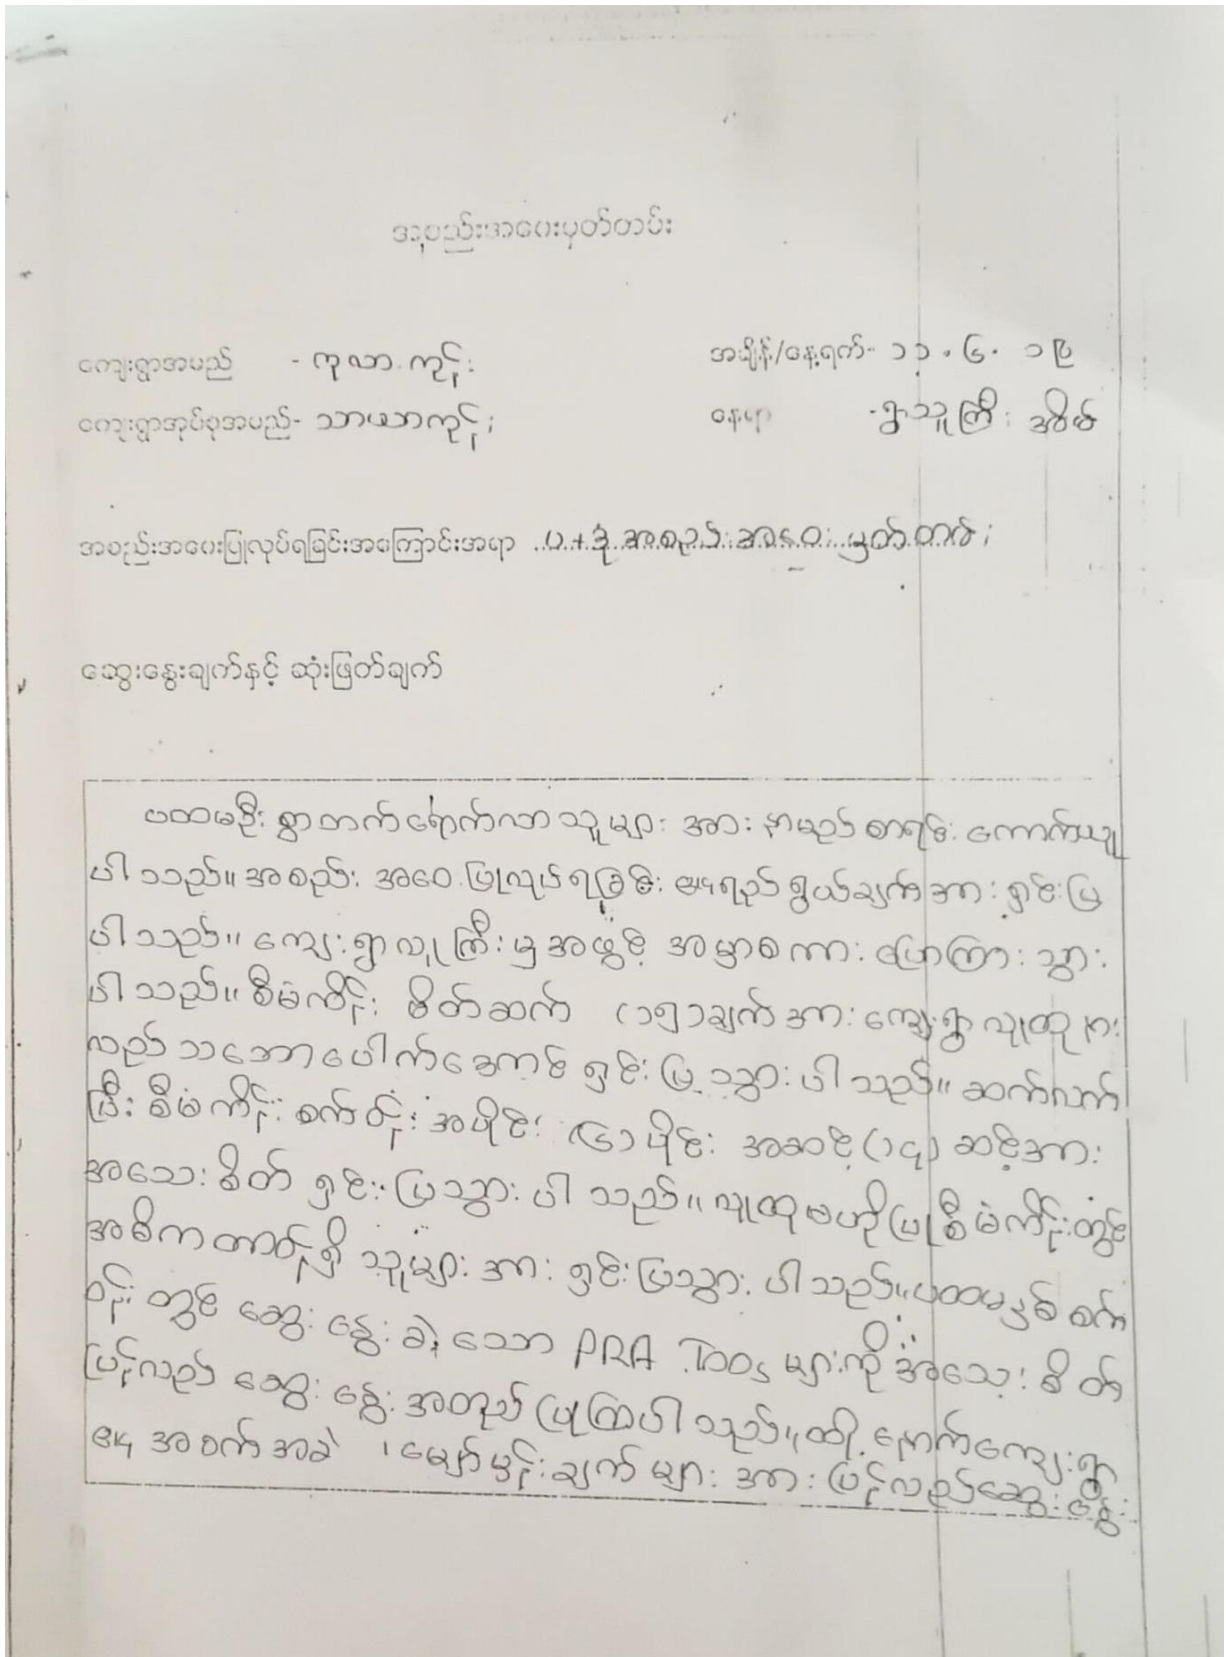 အစည်းအဝေးမှတ်တမ်း
ကျေးရွာအမည် - ကုလားကုန်း အချိန်/နေ့ရက်- ၁၁.၆.၁၉
ကျေးရွာအုပ်စုအမည်- သာယာကုန်း နေရာ -ရွာသူကြီးအိမ်
အစည်းအဝေးပြုလုပ်ရခြင်းအကြောင်းအရာ ပ+ဒုံ အစည်းအဝေး မှတ်တမ်း
ဆွေးနွေးချက်နှင့် ဆုံးဖြတ်ချက်
ပထမဦးစွာတက်ရောက်လာသူများ အား နာမည်စာရင်း ကောက်ယူ
ပါသည်။ အစည်းအဝေးပြုလုပ်ရခြင်း ၏ ရည်ရွယ်ချက်အား ရှင်းပြ
ပါသည်။ ကျေးရွာလူကြီးမှ အဖွင့် အမှာစကား ပြောကြားသွား
ပါသည်။ စီမံကိန်း မိတ်ဆက် (၁၅)ချက်အား ကျေးရွာလူထုနား
လည်သဘောပေါက်အောင် ရှင်းပြသွားပါသည်။ ဆက်လက်
ပြီး စီမံကိန်း စက်ဝန်း အပိုင်း (၆)ပိုင်း အဆင့်(၁၄)ဆင့်အား
အသေးစိတ် ရှင်းပြသွားပါသည်။ လူထုဗဟိုပြုစီမံကိန်းတွင်
အဓိကတာဝန်ရှိသူများ အား ရှင်းပြသွားပါသည်။ ပထမနှစ် စက်
ဝန်းတွင် ဆွေးနွေးခဲ့သော PRA Toos များကို အသေးစိတ်
ပြန်လည် ဆွေးနွေး အတည်ပြုကြပါသည်။ ထို့နောက်ကျေးရွာ
၏ အခက်အခဲ ၊ မျှော်မှန်းချက်များ အား ပြန်လည်ဆွေးနွေး